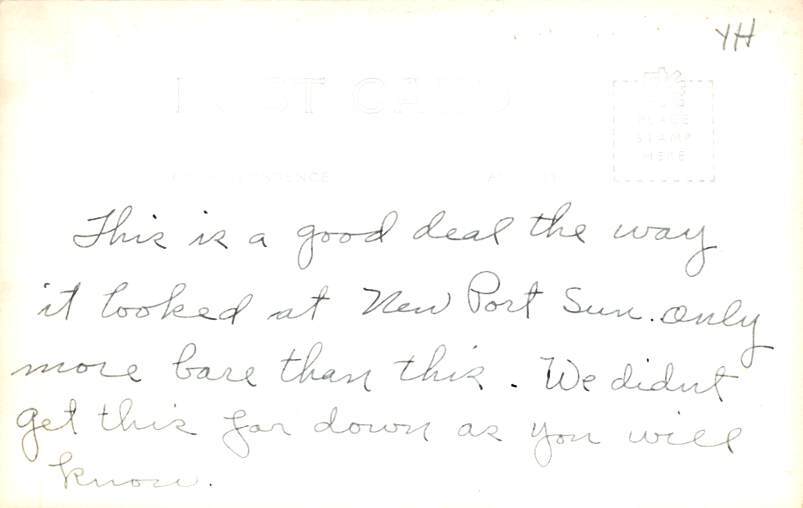 YH
POST CARD
PLACE
STAMP
HERE
This is a good deal the way
it looked at New Port Sun. only
more bare than this. We didnt
get this far down as you will
know.